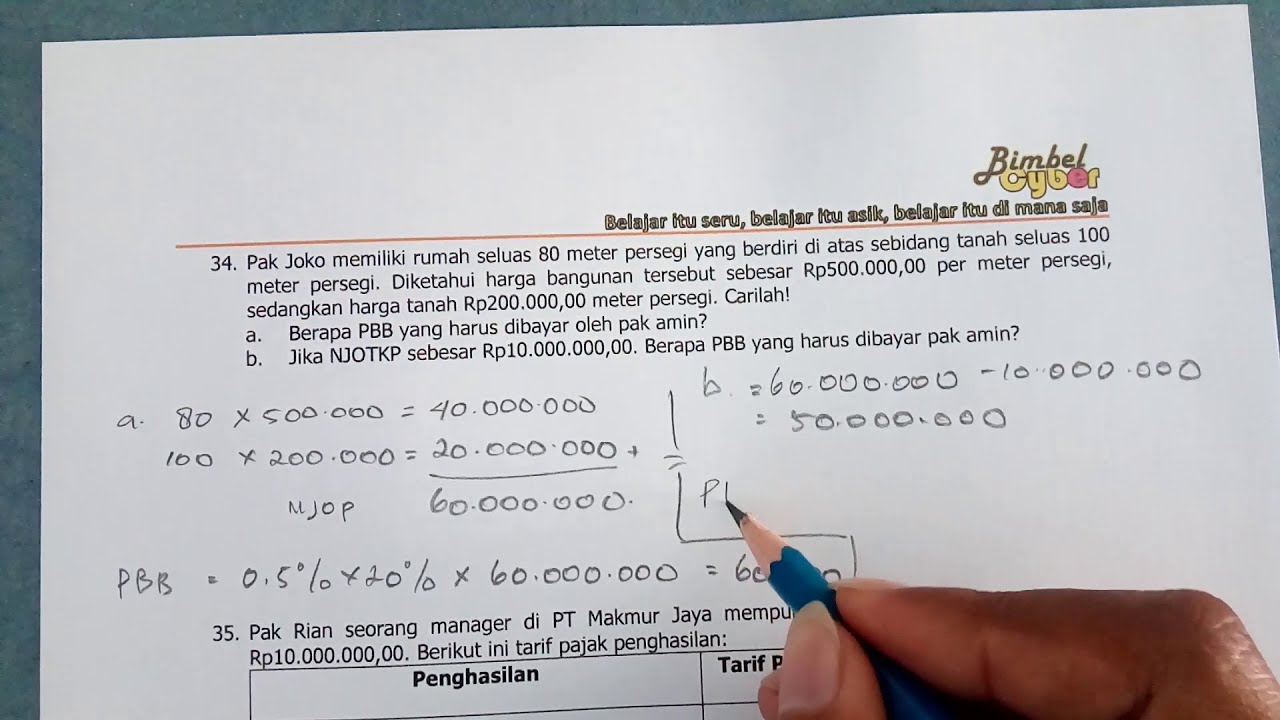 Bimbel
Cyber
Belajar itu seru, belajar itu asik, belajar itu di mana saja
34. Pak Joko memiliki rumah seluas 80 meter persegi yang berdiri di atas sebidang tanah seluas 100
meter persegi. Diketahui harga bangunan tersebut sebesar Rp500.000,00 per meter persegi,
sedangkan harga tanah Rp200.000,00 meter persegi. Carilah!
a. Berapa PBB yang harus dibayar oleh pak amin?
b. Jika NJOTKP sebesar Rp10.000.000,00. Berapa PBB yang harus dibayar pak amin?
a. 80 × 500.000 = 40.000.000
100 × 200.000 = 20.000.000 +
NJOP 60.000.000.
PBB = 0.5% × 20% × 60.000.000 =
b. = 60.000.000 - 10.000.000
= 50.000.000
35. Pak Rian seorang manager di PT Makmur Jaya
Rp10.000.000,00. Berikut ini tarif pajak penghasilan:
Penghasilan
Tarif